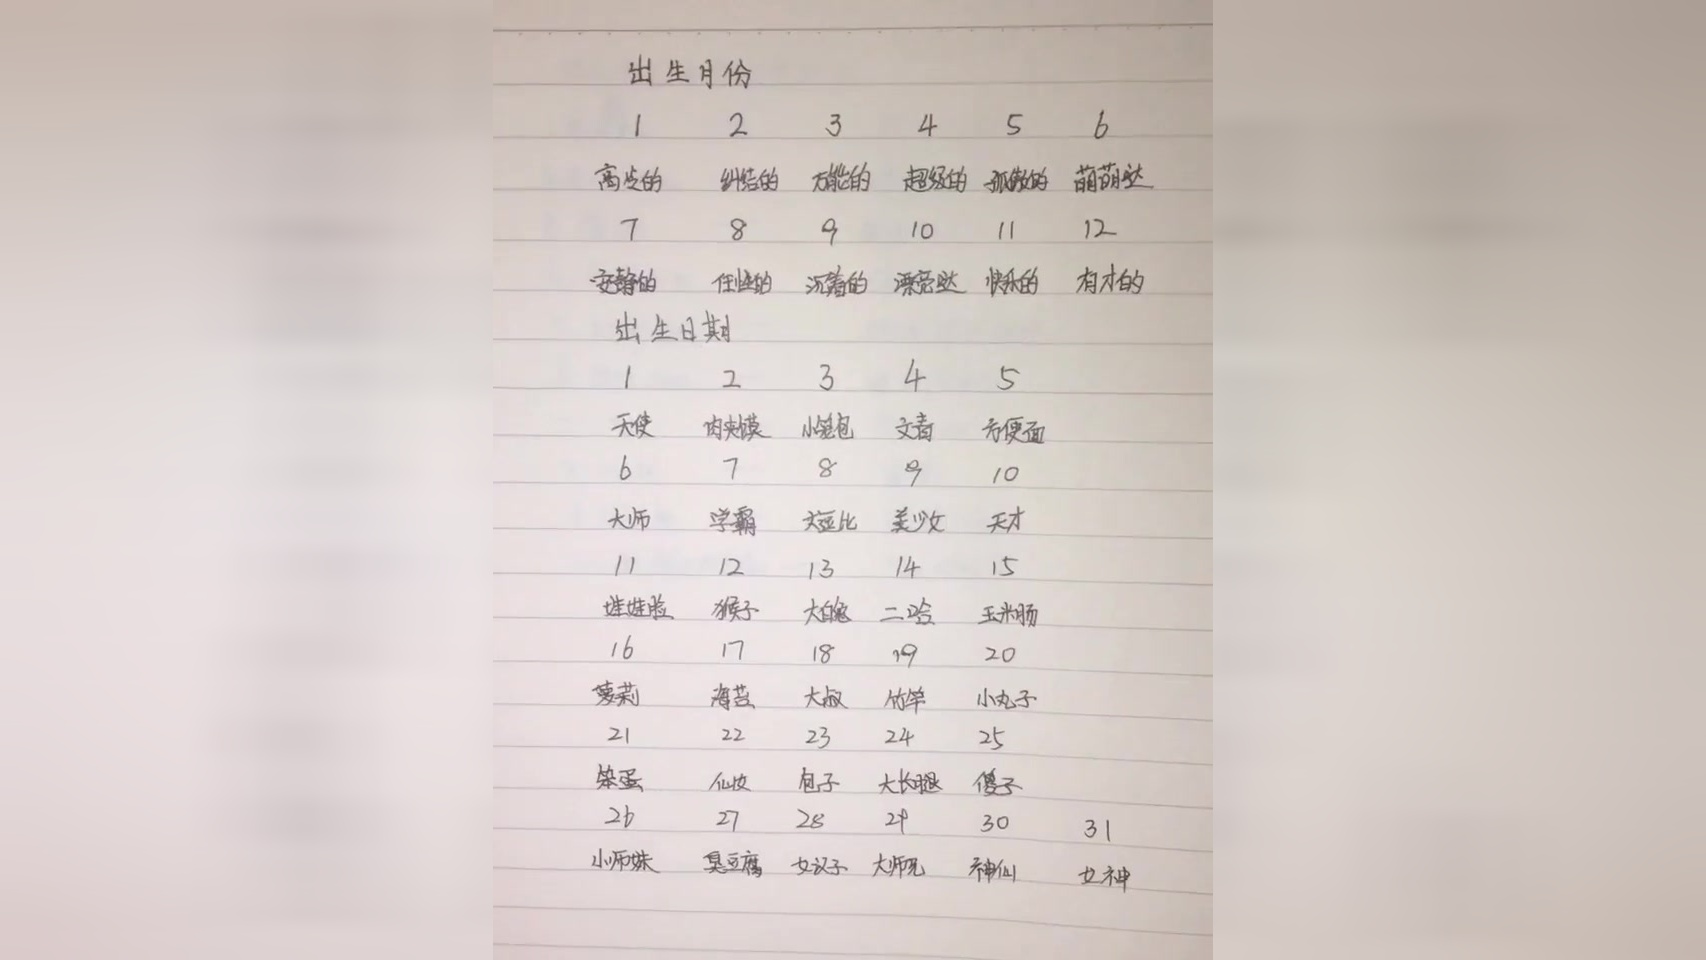 出生月份
1 2 3 4 5 6
高冷的 纠结的 万能的 超级的 孤傲的 萌萌哒
7 8 9 10 11 12
安静的 任性的 沉着的 漂亮哒 快乐的 有才的
出生日期
1 2 3 4 5
天使 肉夹馍 小笼包 文青 方便面
6 7 8 9 10
大师 学霸 大逗比 美少女 天才
11 12 13 14 15
娃娃脸 猴子 大白兔 二哈 玉米肠
16 17 18 19 20
萝莉 海苔 大叔 竹竿 小丸子
21 22 23 24 25
笨蛋 仙女 包子 大长腿 傻子
26 27 28 29 30 31
小师妹 臭豆腐 女汉子 大师兄 神仙 女神